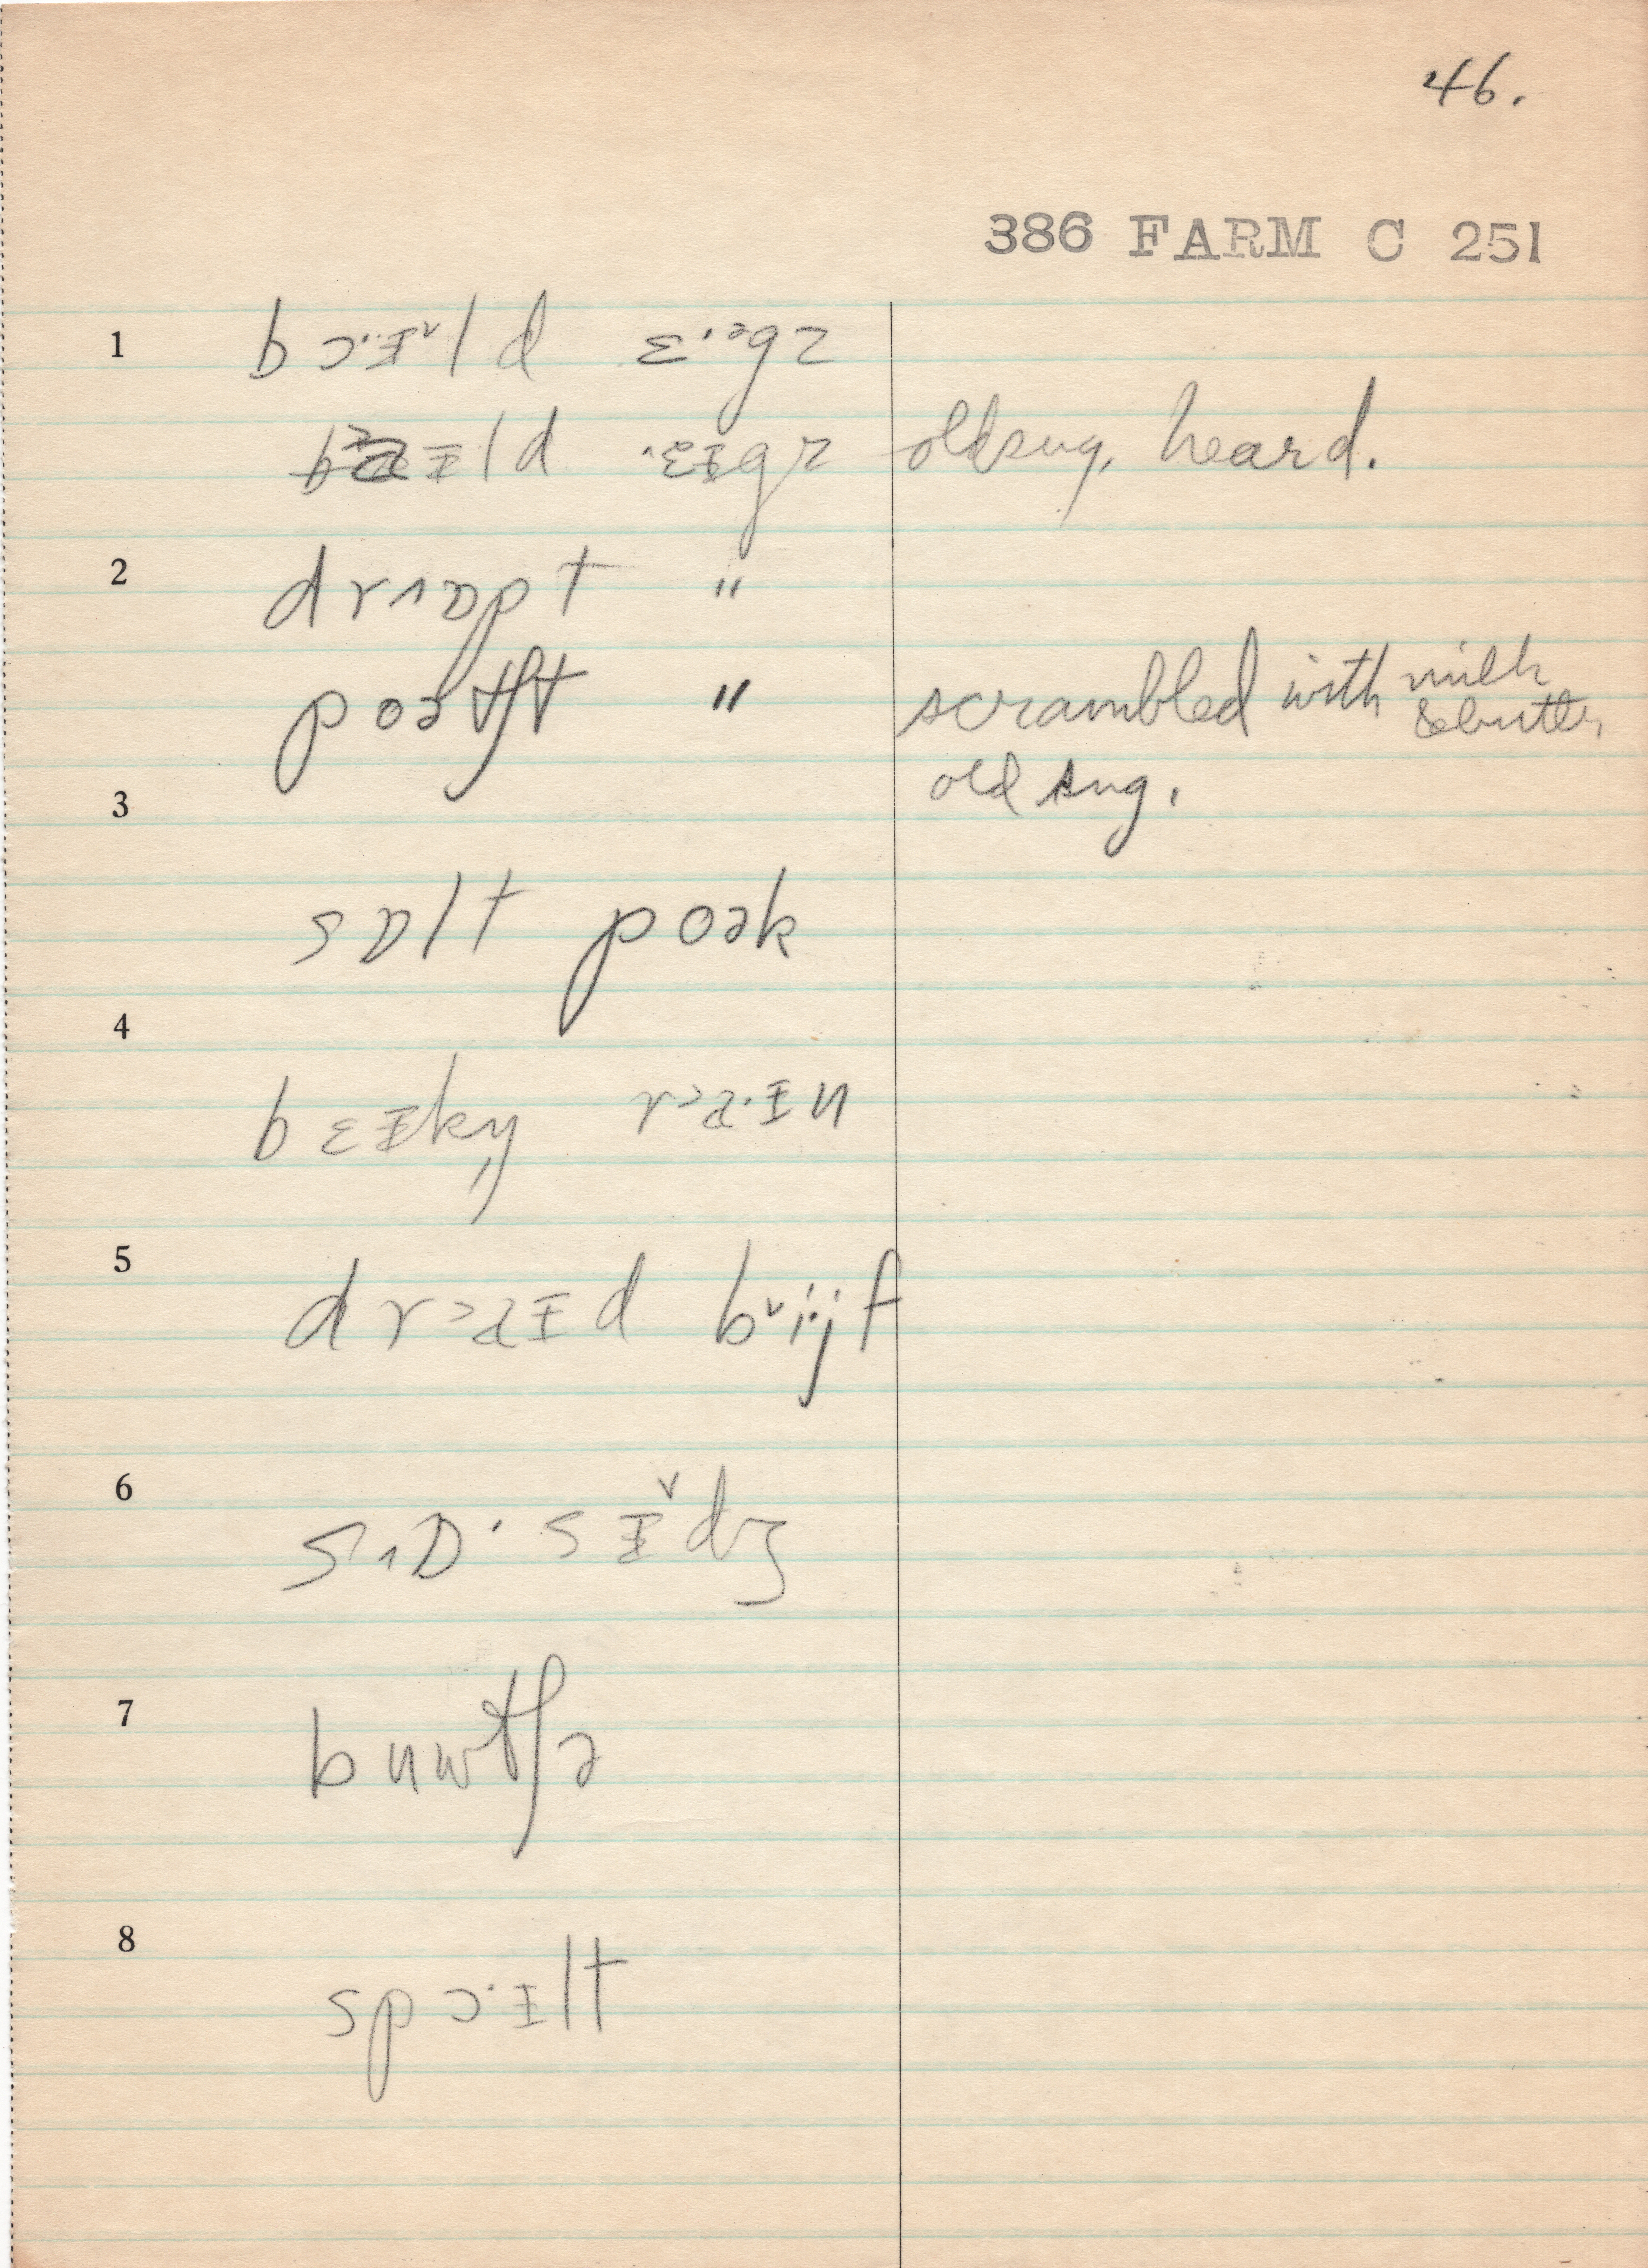 46.
386 FARM C 251
1 bɔ·ɪ̵ˇld ɛ·ᵊgz
bɒɪ̵ld ·ɛɪ̵gz old sug, heard.
2 drʌɒpt "
poətʃt " scrambled with milk & butter,
old sug.
3
sɒlt poək
4
bɛɪ̵kn̩ r>a·ɪ̵n
5
dr>aɪ̵d bˇi·jf
6
sʌɒ·sɪ̵ˇdʒ
7
buwtʃə
8
spɔ·ɪ̵lt